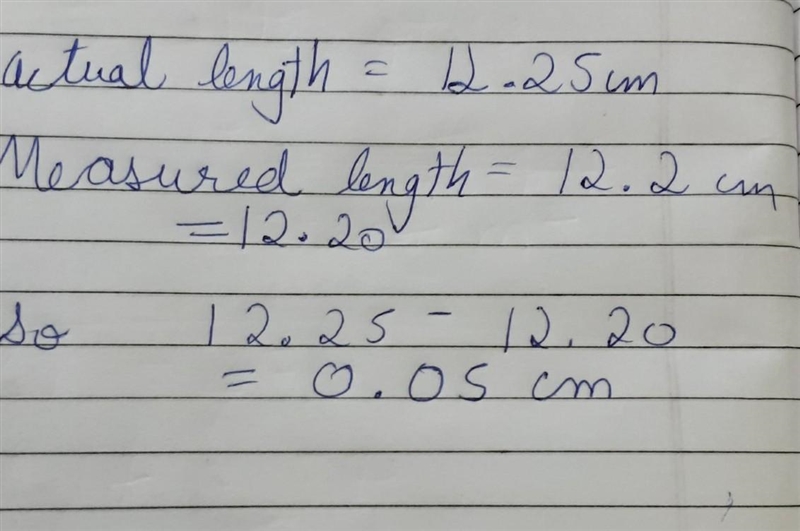 actual length = 12.25cm
Measured length = 12.2 cm
= 12.20
so 12.25 - 12.20
= 0.05 cm